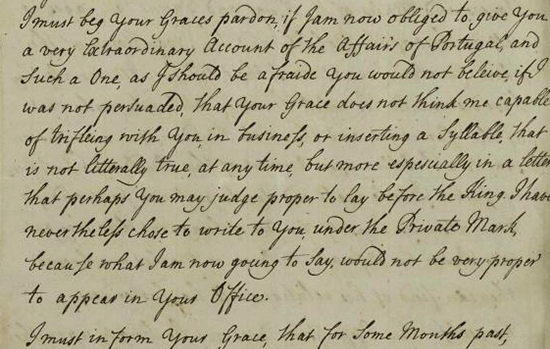 I must beg Your Graces pardon, if I am now obliged to, give You
a very Extraordinary Account of the Affairs of Portugal, and
Such a One, as I Should be afraide You would not beleive, if I
was not persuaded, that Your Grace does not think me capable
of trifleing with You, in business, or inserting a Syllable, that
is not litterally true, at any time, but more espescually in a letter
that perhaps You may judge proper to lay before the King. I have
nevertheless chose to write to You, under the Private Mark,
because what I am now going to Say, would not be very proper
to appear in Your Office.
I must inform Your Grace, that for Some Months past,